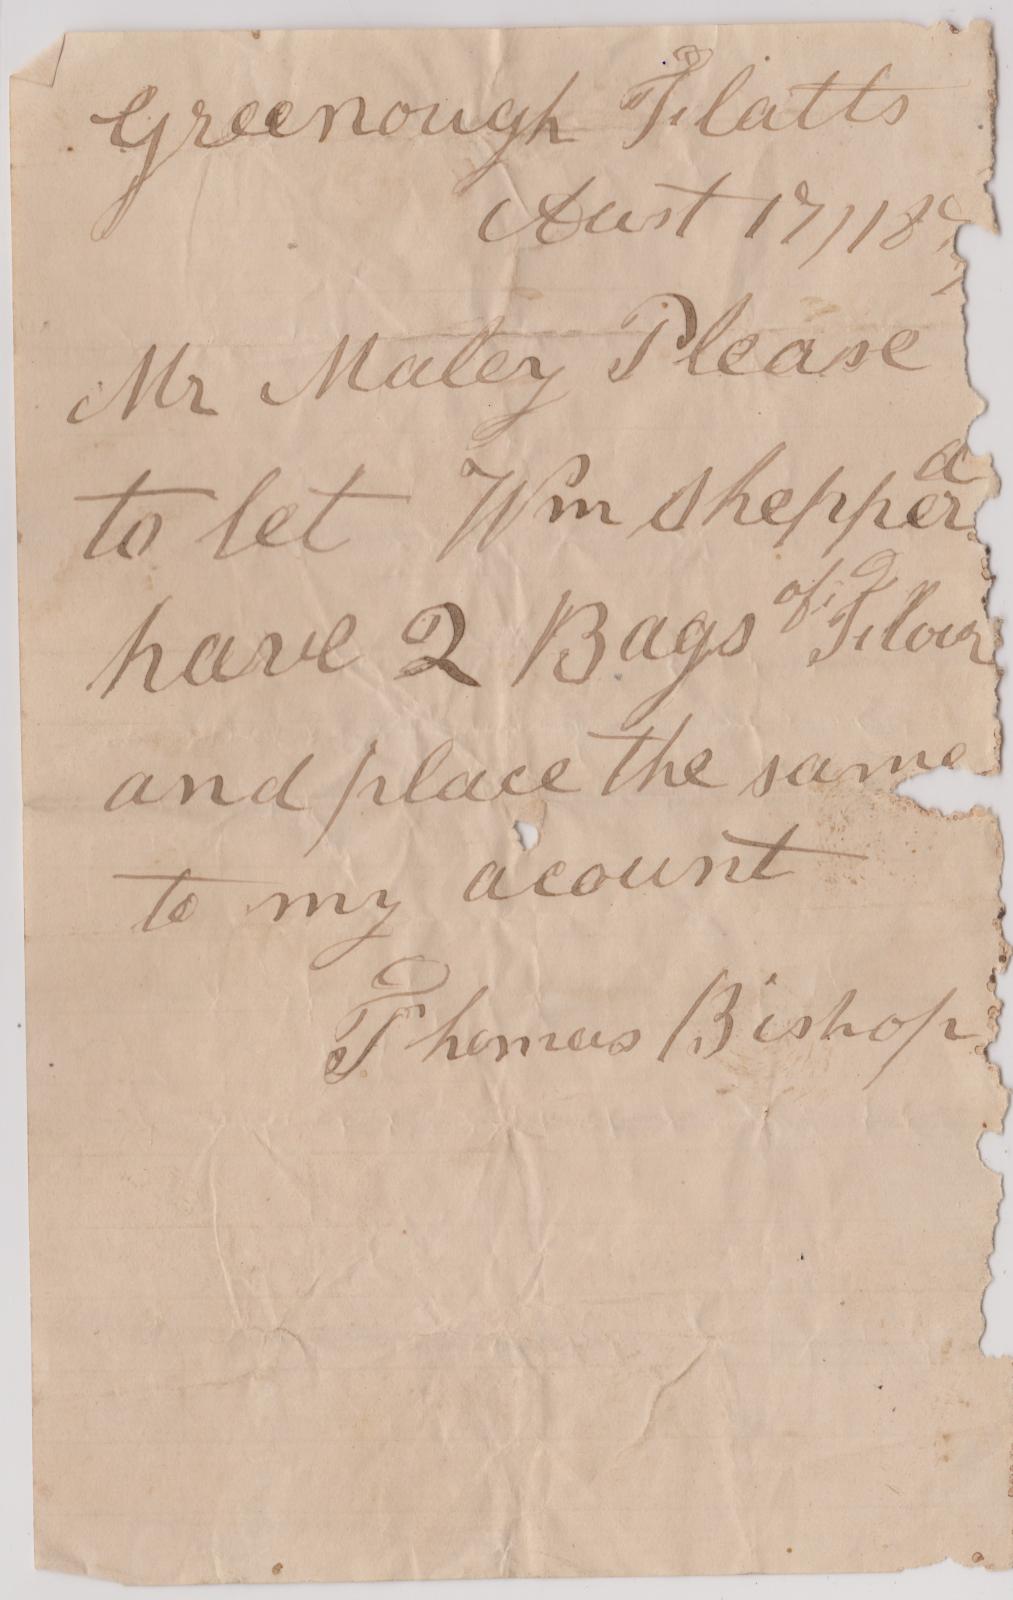 Greenough Flatts
Aust 17/18
Mr Maley Please
to let Wm Shepperd
have 2 Bags of Flour
and place the same
to my acount
Thomas Bishop